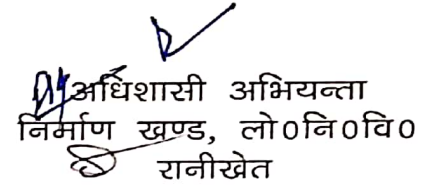 अधिशासी अभियन्ता
निर्माण खण्ड, लो0नि0वि0
रानीखेत